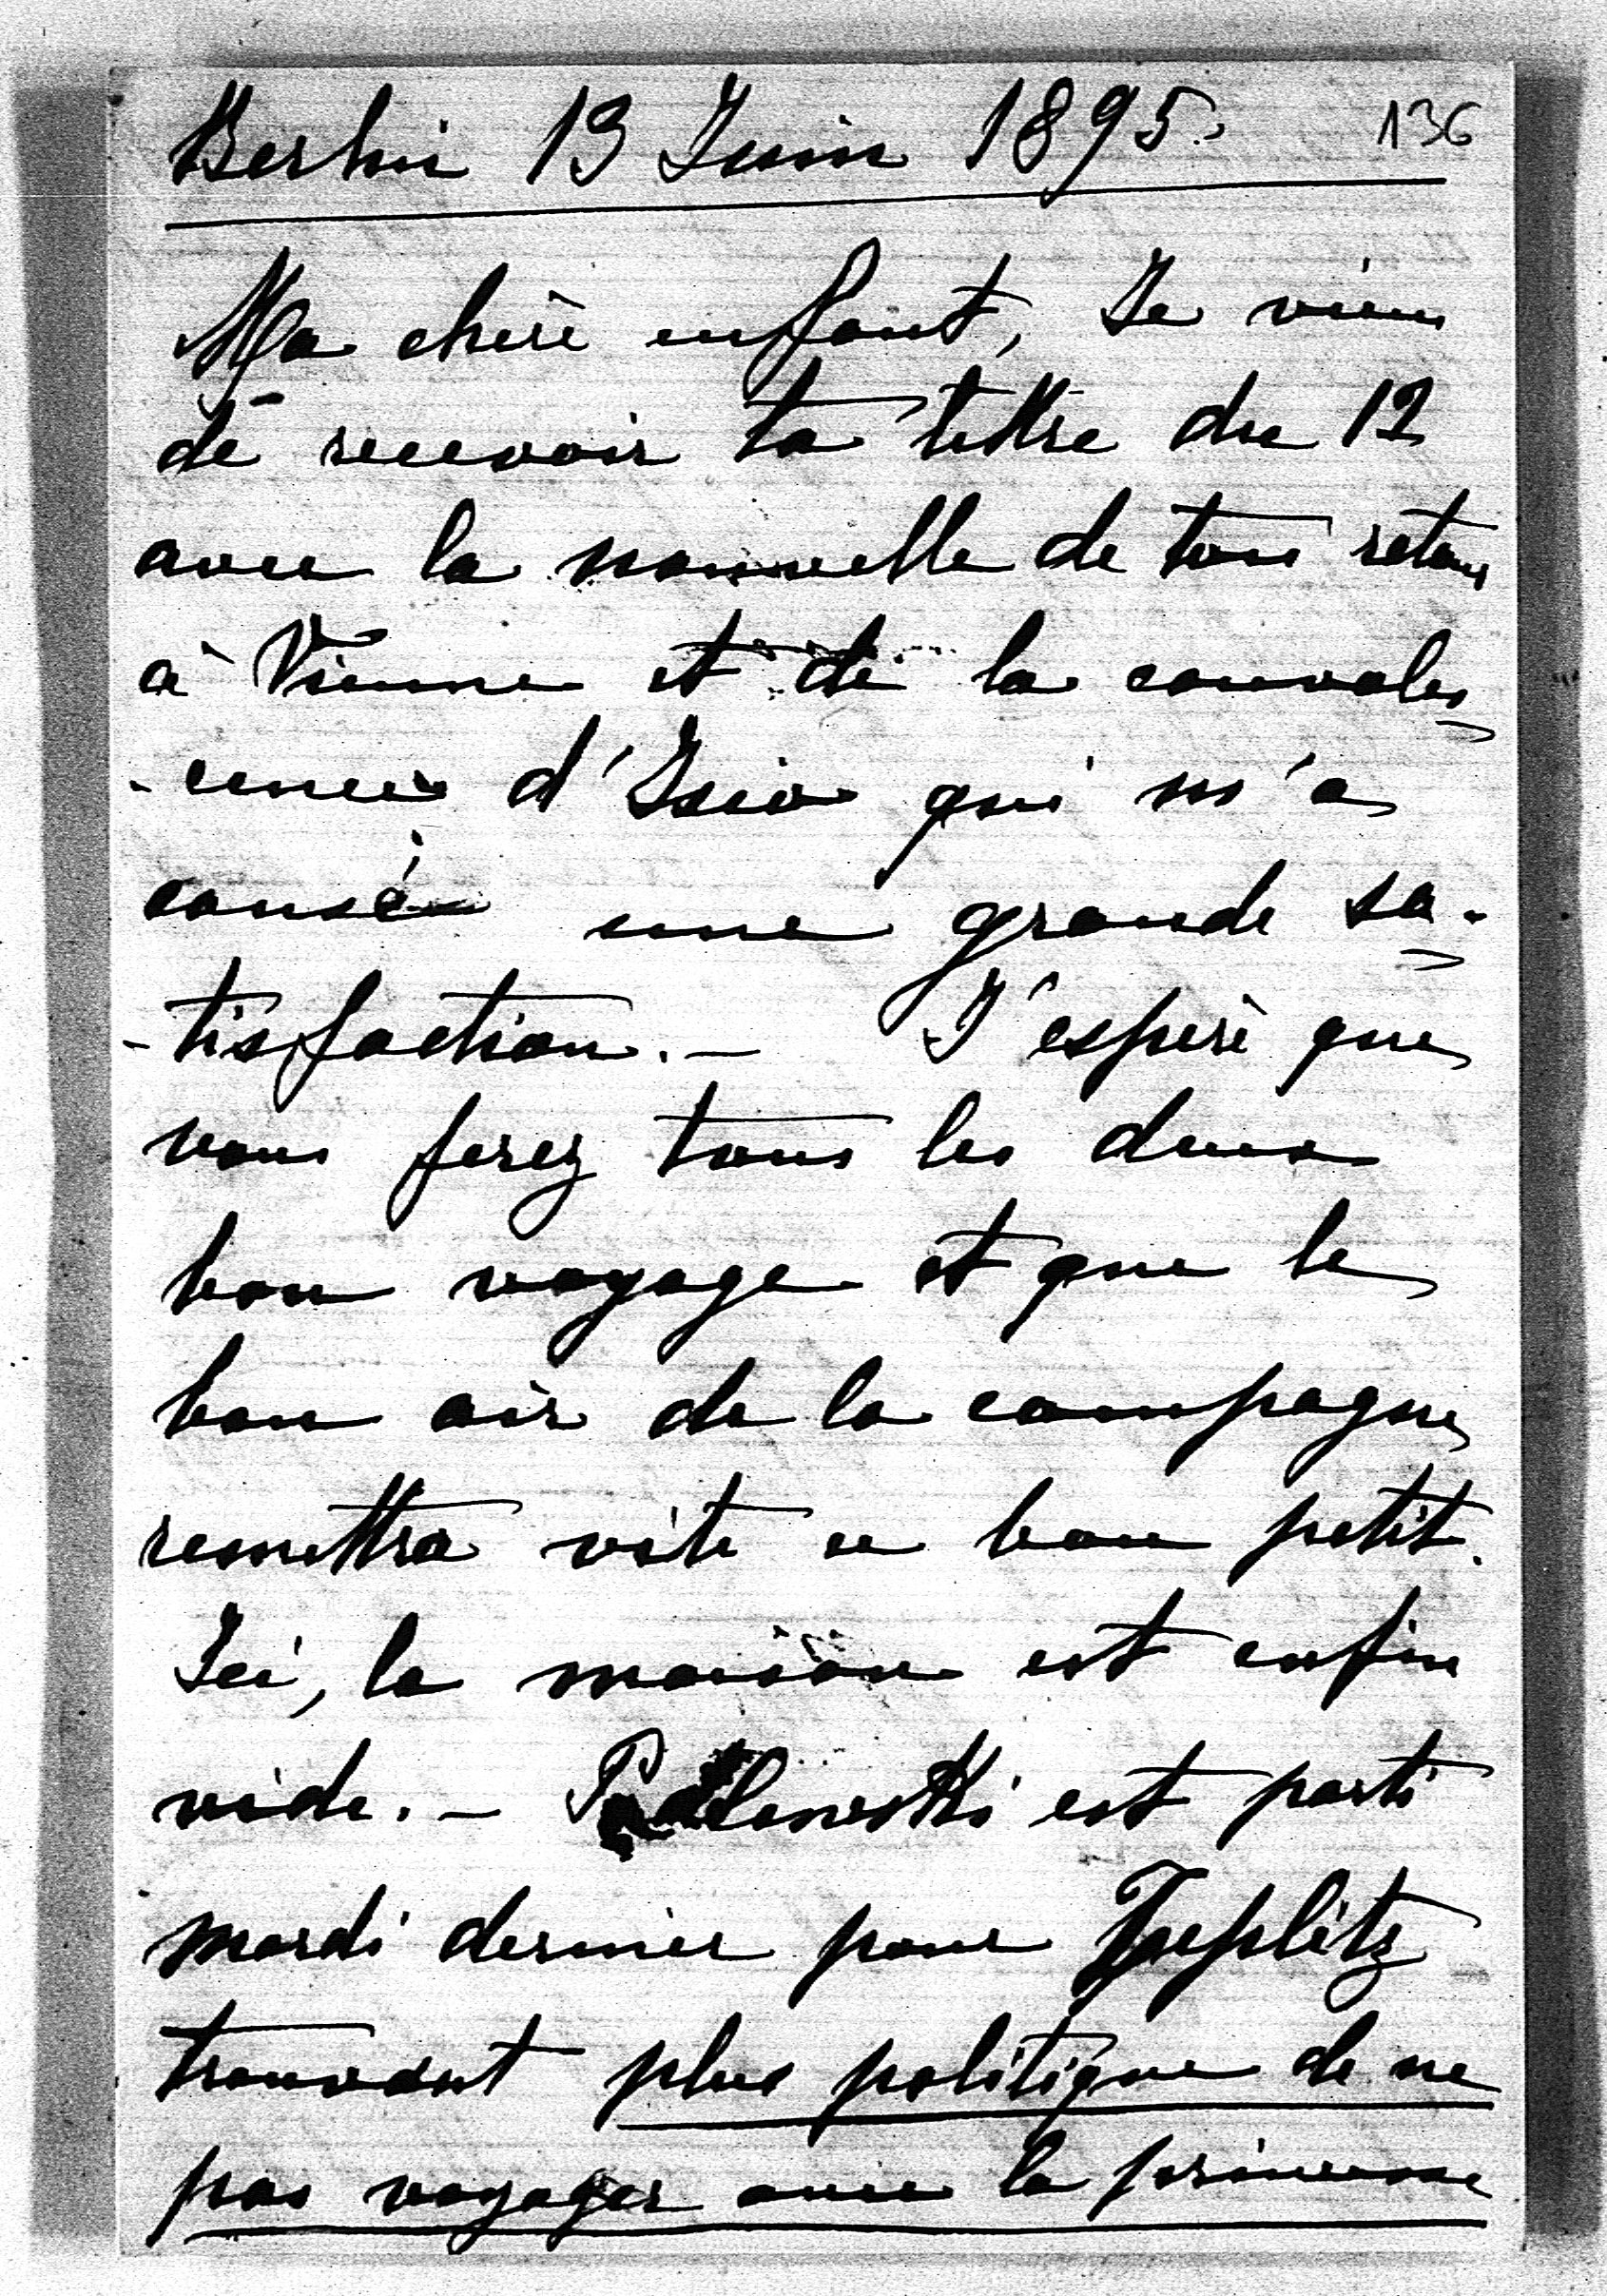 Berlin 13 Juin 1895.
136
Ma chère enfant, Je viens
de recevoir ta lettre du 12
avec la nouvelle de ton retour
à Vienne et de la convales
-cence d'Isio qui m'a
causé une grande sa-
-tisfaction. — J'espère que
vous ferez tous les deux
bon voyage et que le
bon air de la campagne
remettra vite ce bon petit.
Ici, la maison est enfin
vide. — est parti
mardi dernier pour Toeplitz
trouvant plus politique de ne
pas voyager avec la princesse